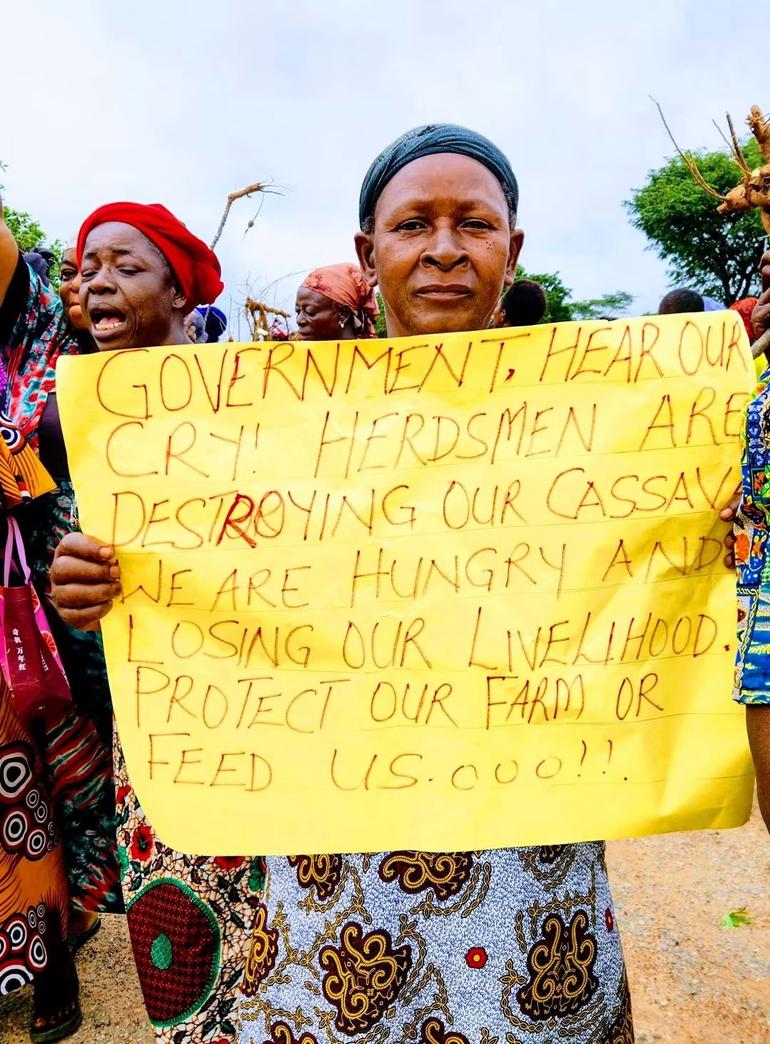 GOVERNMENT, HEAR OUR
CRY! HERDSMEN ARE
DESTROYING OUR CASSAV
WE ARE HUNGRY AND
LOSING OUR LIVELIHOOD.
PROTECT OUR FARM OR
FEED US.ooo!!.
万年红